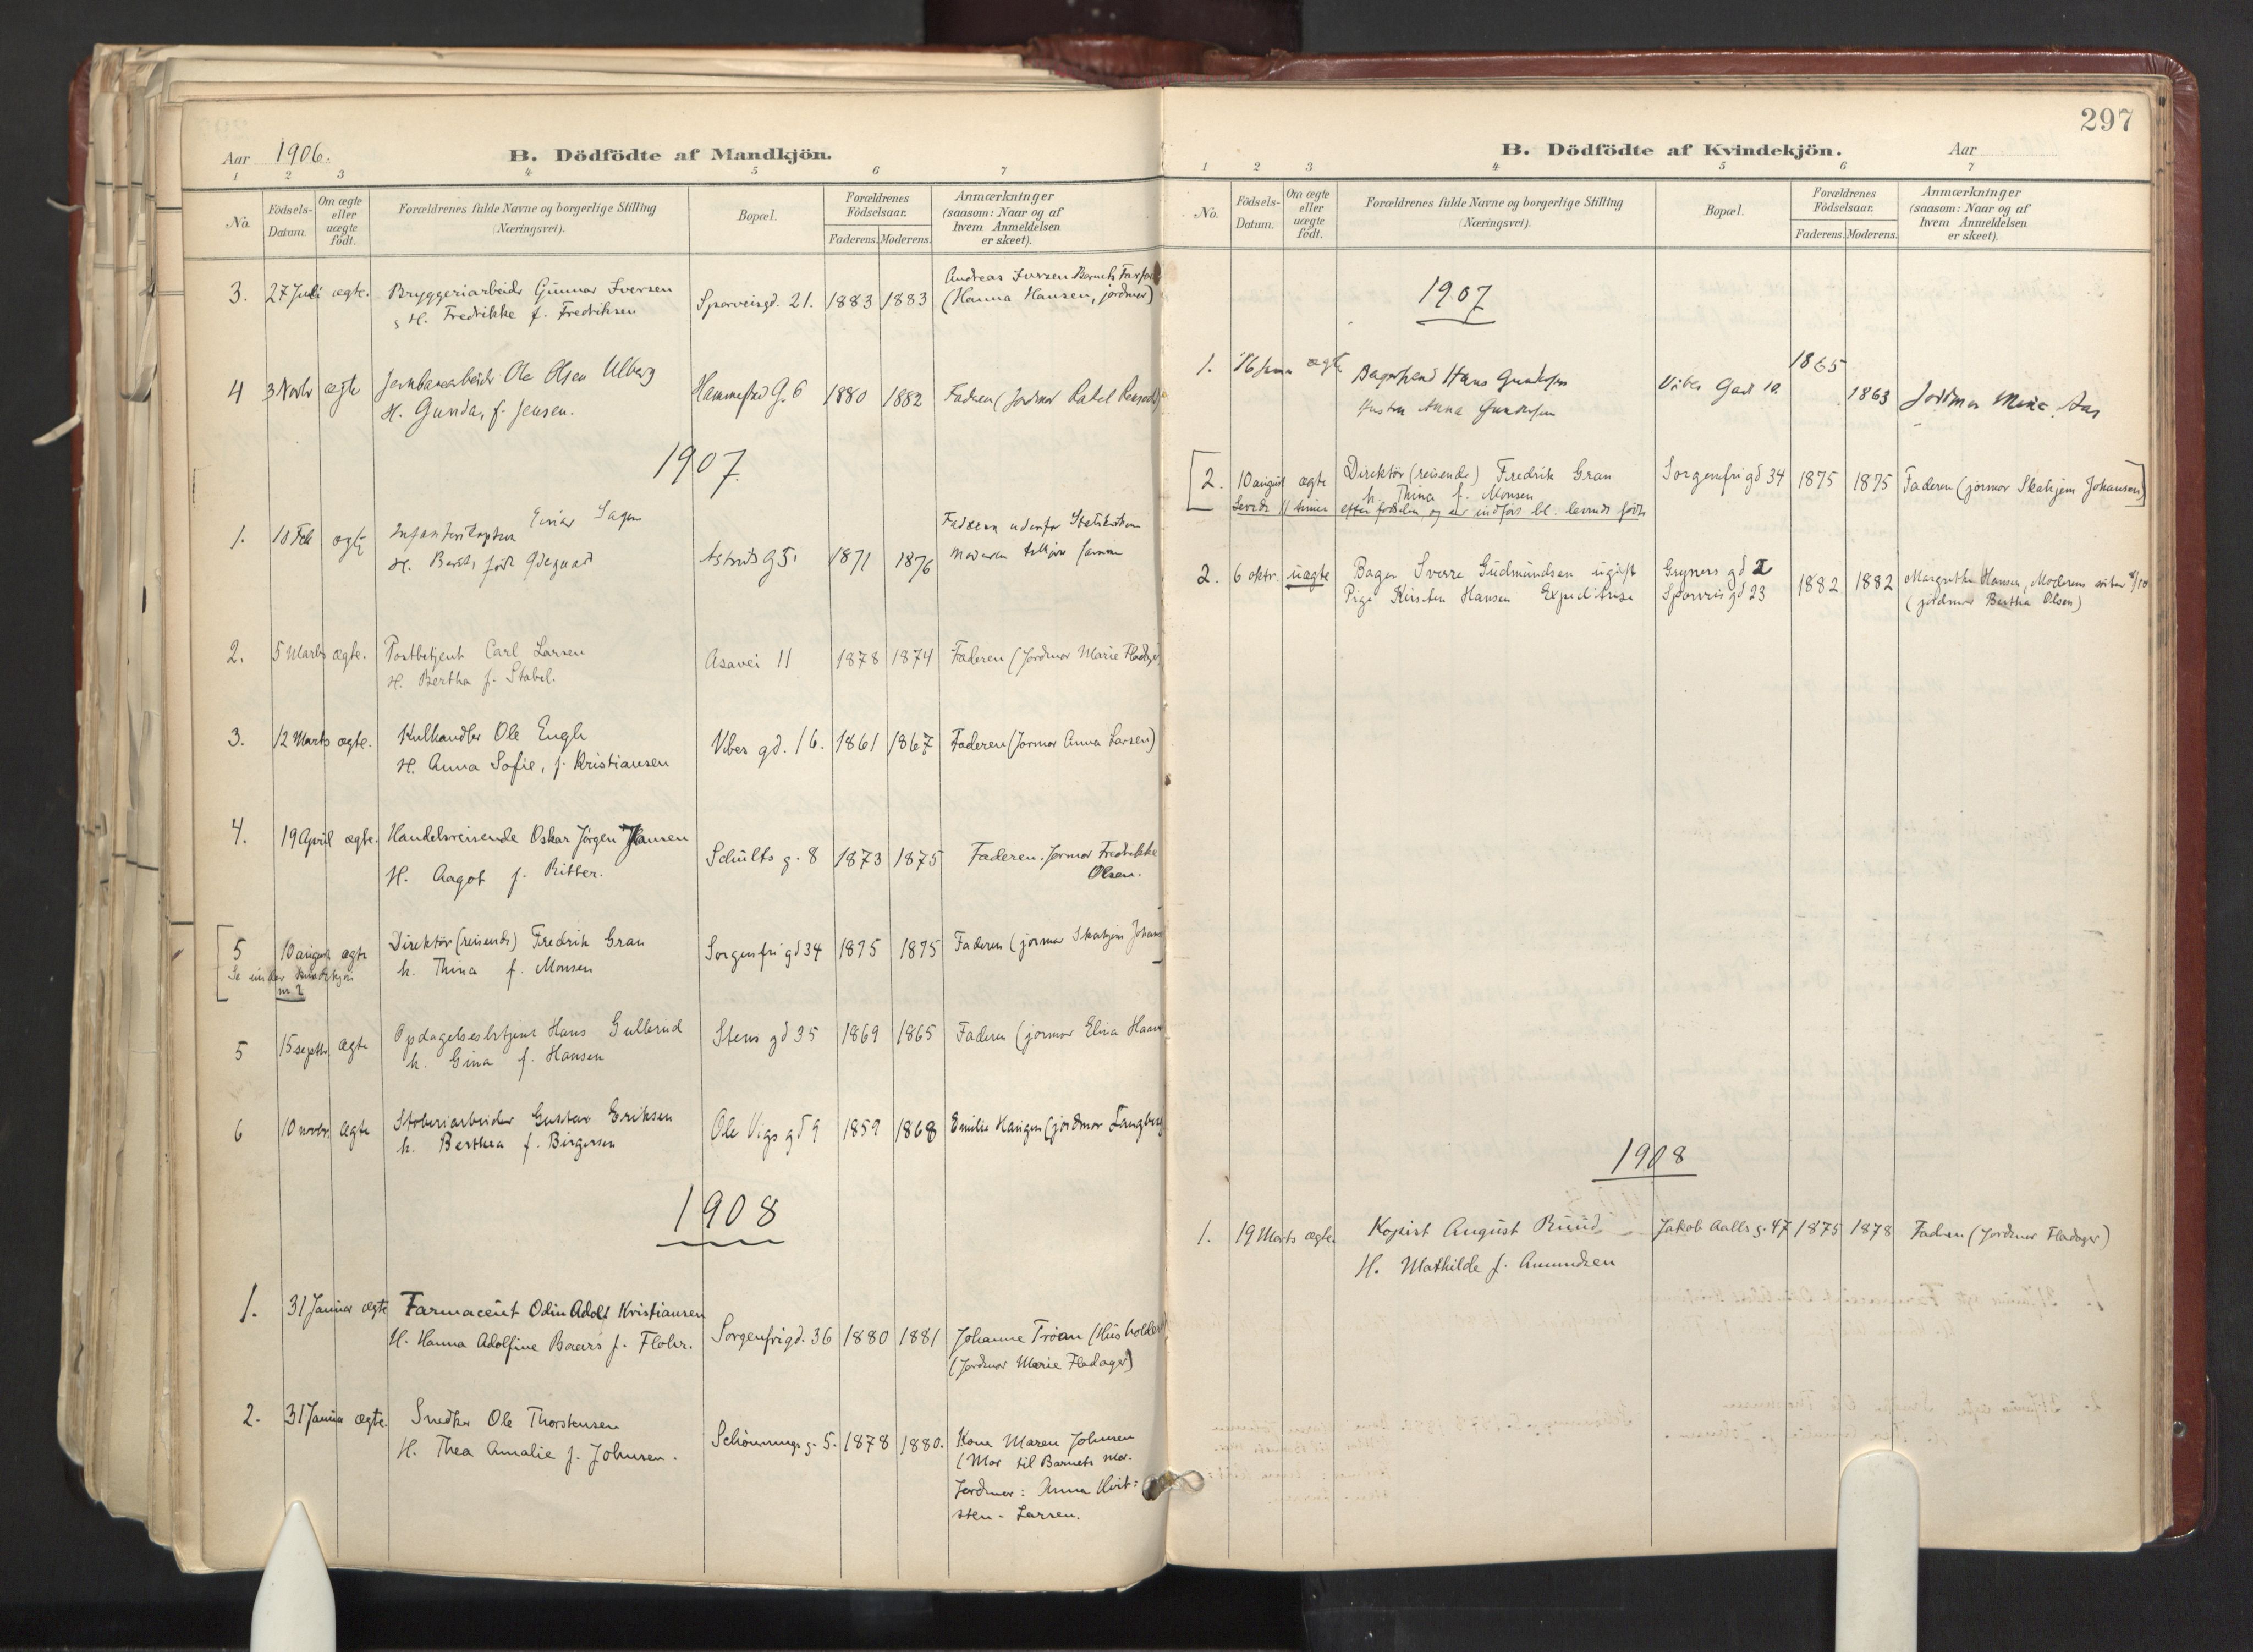 Aar 1906. B. Dödfödte af Mandkjön.
1 2 3 4 5 6 7
No. Födsels-Datum. Om ægte eller uægte födt. Forældrenes fulde Navne og borgerlige Stilling (Næringsvei). Bopæl. Forældrenes Födselsaar. Faderens. Moderens. Anmærkninger (saasom: Naar og af hvem Anmeldelsen er skeet).
3. 27 Juli ægte. Bryggeriarbeider Gunnar Iversen Sporveisgd. 21. 1883 1883 Andreas Iversen Barnets Farfar
H. Fredrikke f. Fredriksen (Hanna Hansen, jordmor)
4 3 Novbr ægte Jernbanearbeider Ole Olsen Ulberg Hammerstad G. 6 1880 1882 Faderen (Jordmor Rakel
H. Gunda, f. Jensen.
1907.
1. 18 Feb ægte Einar Astrids G 5. 1871 1876 Faderen udenfor Statskirken
H. født Ødegaard Moderen tilhører samme
2. 5 Marts ægte. Postbetjent Carl Larsen Asavei 11 1878 1874 Faderen (Jordmor Marie Fladager
H. Bertha f. Stabel.
3. 12 Marts ægte. Kulhandler Ole Engh Vibes gd. 16. 1861 1867 Faderen (Jormor Anna Larsen)
H. Anna Sofie, f. Kristiansen
4. 19 April ægte. Handelsreisende Oskar Jörgen Hansen Schults g. 8 1873 1875 Faderen. Jormor Fredrikke
H. Aagot f. Ritter. Olsen.
[5 10 august ægte Direktör (reisende) Fredrik Gran Sorgenfri gd 34 1875 1875 Faderen (jormor Skahjem Johans
Se under kvindekjön nr. 2 h. Thina f. Monsen
5 15 septbr. ægte Opdagelsesbetjent Hans Gullerud Stens gd 35 1869 1865 Faderen (jormor Elina
h. Gina f. Hansen
6 10 novbr. ægte Stoberiarbeider Gustav Eriksen Ole Vigs gd 9 1859 1868 Emilie Haugen (jordmor Langberg
h. Berthea f. Birgersen
1908
1. 31 Januar ægte Farmaceut Odin Adolf Kristiansen Sorgenfrigd. 36 1880 1881 Johanne Troan (Husholder
H. Hanna Adolfine Baars f. Flohr. (Jordmor Marie Fladager)
2. 31 Januar ægte. Snedker Ole Thorstensen Schönnings g. 5. 1878 1880. Kone Maren Johnsen
H. Thea Amalie f. Johnsen. (Mor til Barnets mor.
Jordmor: Anna Hvit:
sten-Larsen.
297
B. Dödfödte af Kvindekjön. Aar
1 2 3 4 5 6 7
No. Födsels-Datum. Om ægte eller uægte födt. Forældrenes fulde Navne og borgerlige Stilling (Næringsvei). Bopæl. Forældrenes Födselsaar. Faderens. Moderens. Anmærkninger (saasom: Naar og af hvem Anmeldelsen er skeet).
1907
1. 16 ægte Bagersvend Hans Gundersen Vibes Gade 1865 1863 Jordmor Aas
Hustru Anna Gundersen
[2. 10 august ægte Direktör (reisende) Fredrik Gran Sorgenfri gd 34 1875 1875 Faderen (jormor Skahjem Johansen)]
h. Thina f. Monsen
Levede 11 timer efter födselen, og er indfört bl. levende födte
2. 6 oktr. uægte Bager Sverre Gudmundsen ugift Gryners gd 1882 1882 Margrethe Hansen, Moderens söster
Pige Kirsten Hansen Expeditrice Sporveisgd 23 (jordmor Bertha Olsen)
1908
1. 19 Marts ægte. Kopist August Ruud Jakob Aalls g. 47 1875 1878 Faderen (Jordmor Fladager)
H. Mathilde f. Amundsen